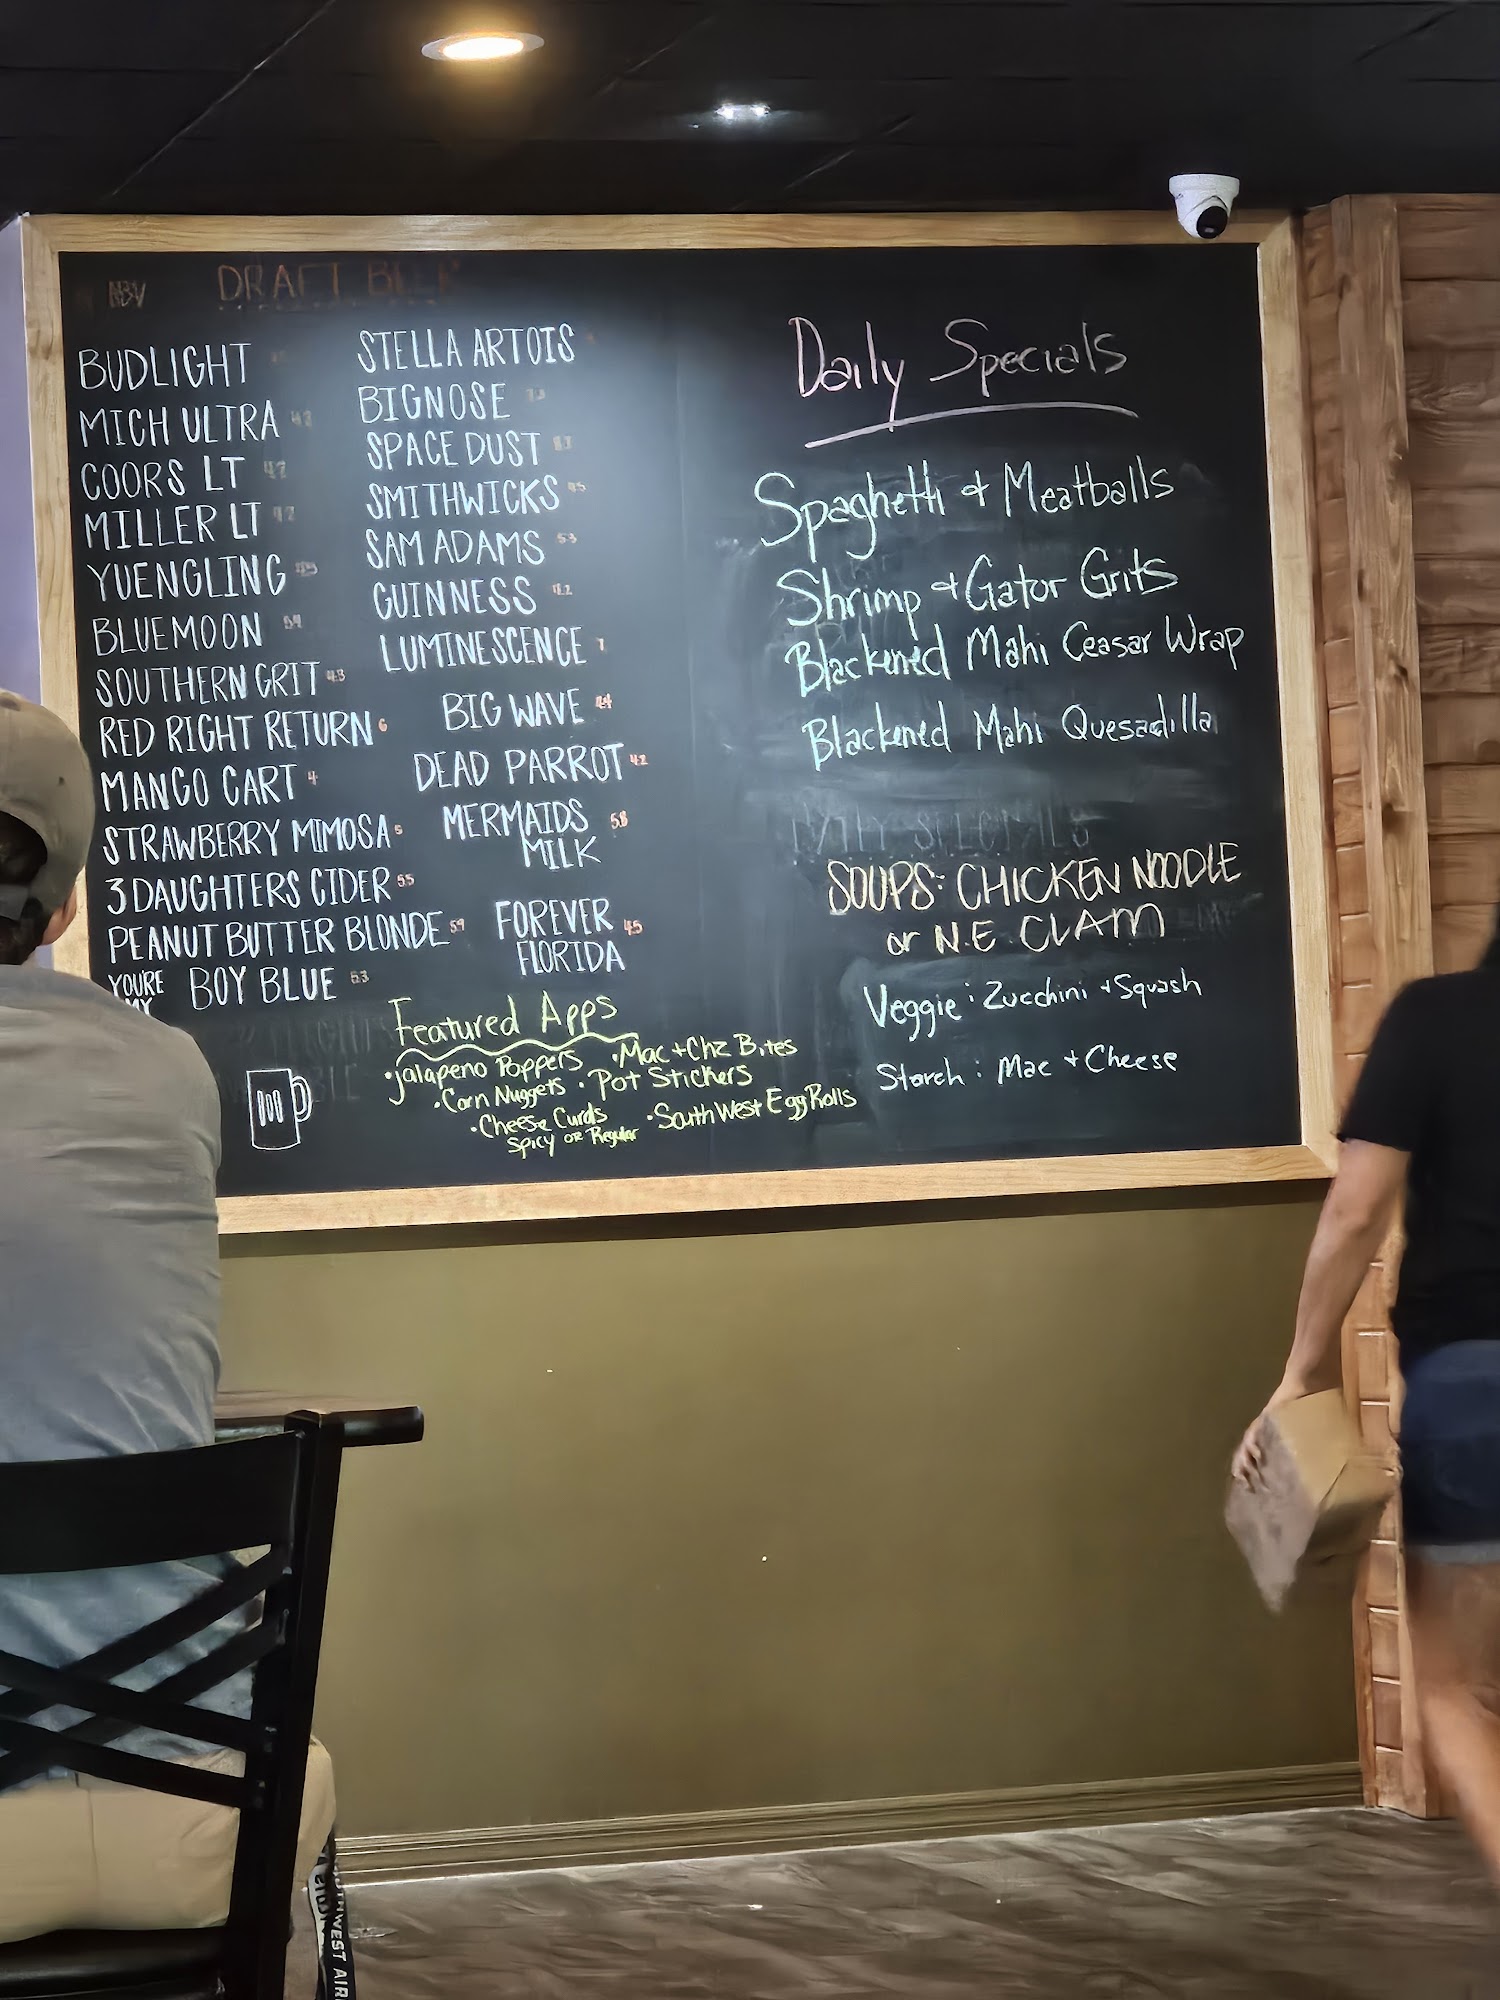 ABV
DRAFT BEER
BUDLIGHT
MICH ULTRA 4.2
COORS LT 4.2
MILLER LT 4.2
YUENGLING 4.5
BLUEMOON 5.4
SOUTHERN GRIT 4.3
RED RIGHT RETURN 6
MANGO CART 4
STRAWBERRY MIMOSA 5
3 DAUGHTERS CIDER 5.5
PEANUT BUTTER BLONDE 5.9
YOU'RE MY BOY BLUE 5.3
STELLA ARTOIS
BIGNOSE
SPACE DUST
SMITHWICKS 4.5
SAM ADAMS 5.3
GUINNESS 4.2
LUMINESCENCE 7
BIG WAVE 4.4
DEAD PARROT 4.2
MERMAIDS 5.8
MILK
FOREVER 4.5
FLORIDA
Featured Apps
•Jalapeno Poppers •Mac + Chz Bites
•Corn Nuggets •Pot Stickers
•Cheese Curds •SouthWest EggRolls
Spicy or Regular
Daily Specials
Spaghetti + Meatballs
Shrimp + Gator Grits
Blackened Mahi Ceasar Wrap
Blackened Mahi Quesadilla
SOUPS: CHICKEN NOODLE
or N.E CLAM
Veggie: Zucchini + Squash
Starch: Mac + Cheese